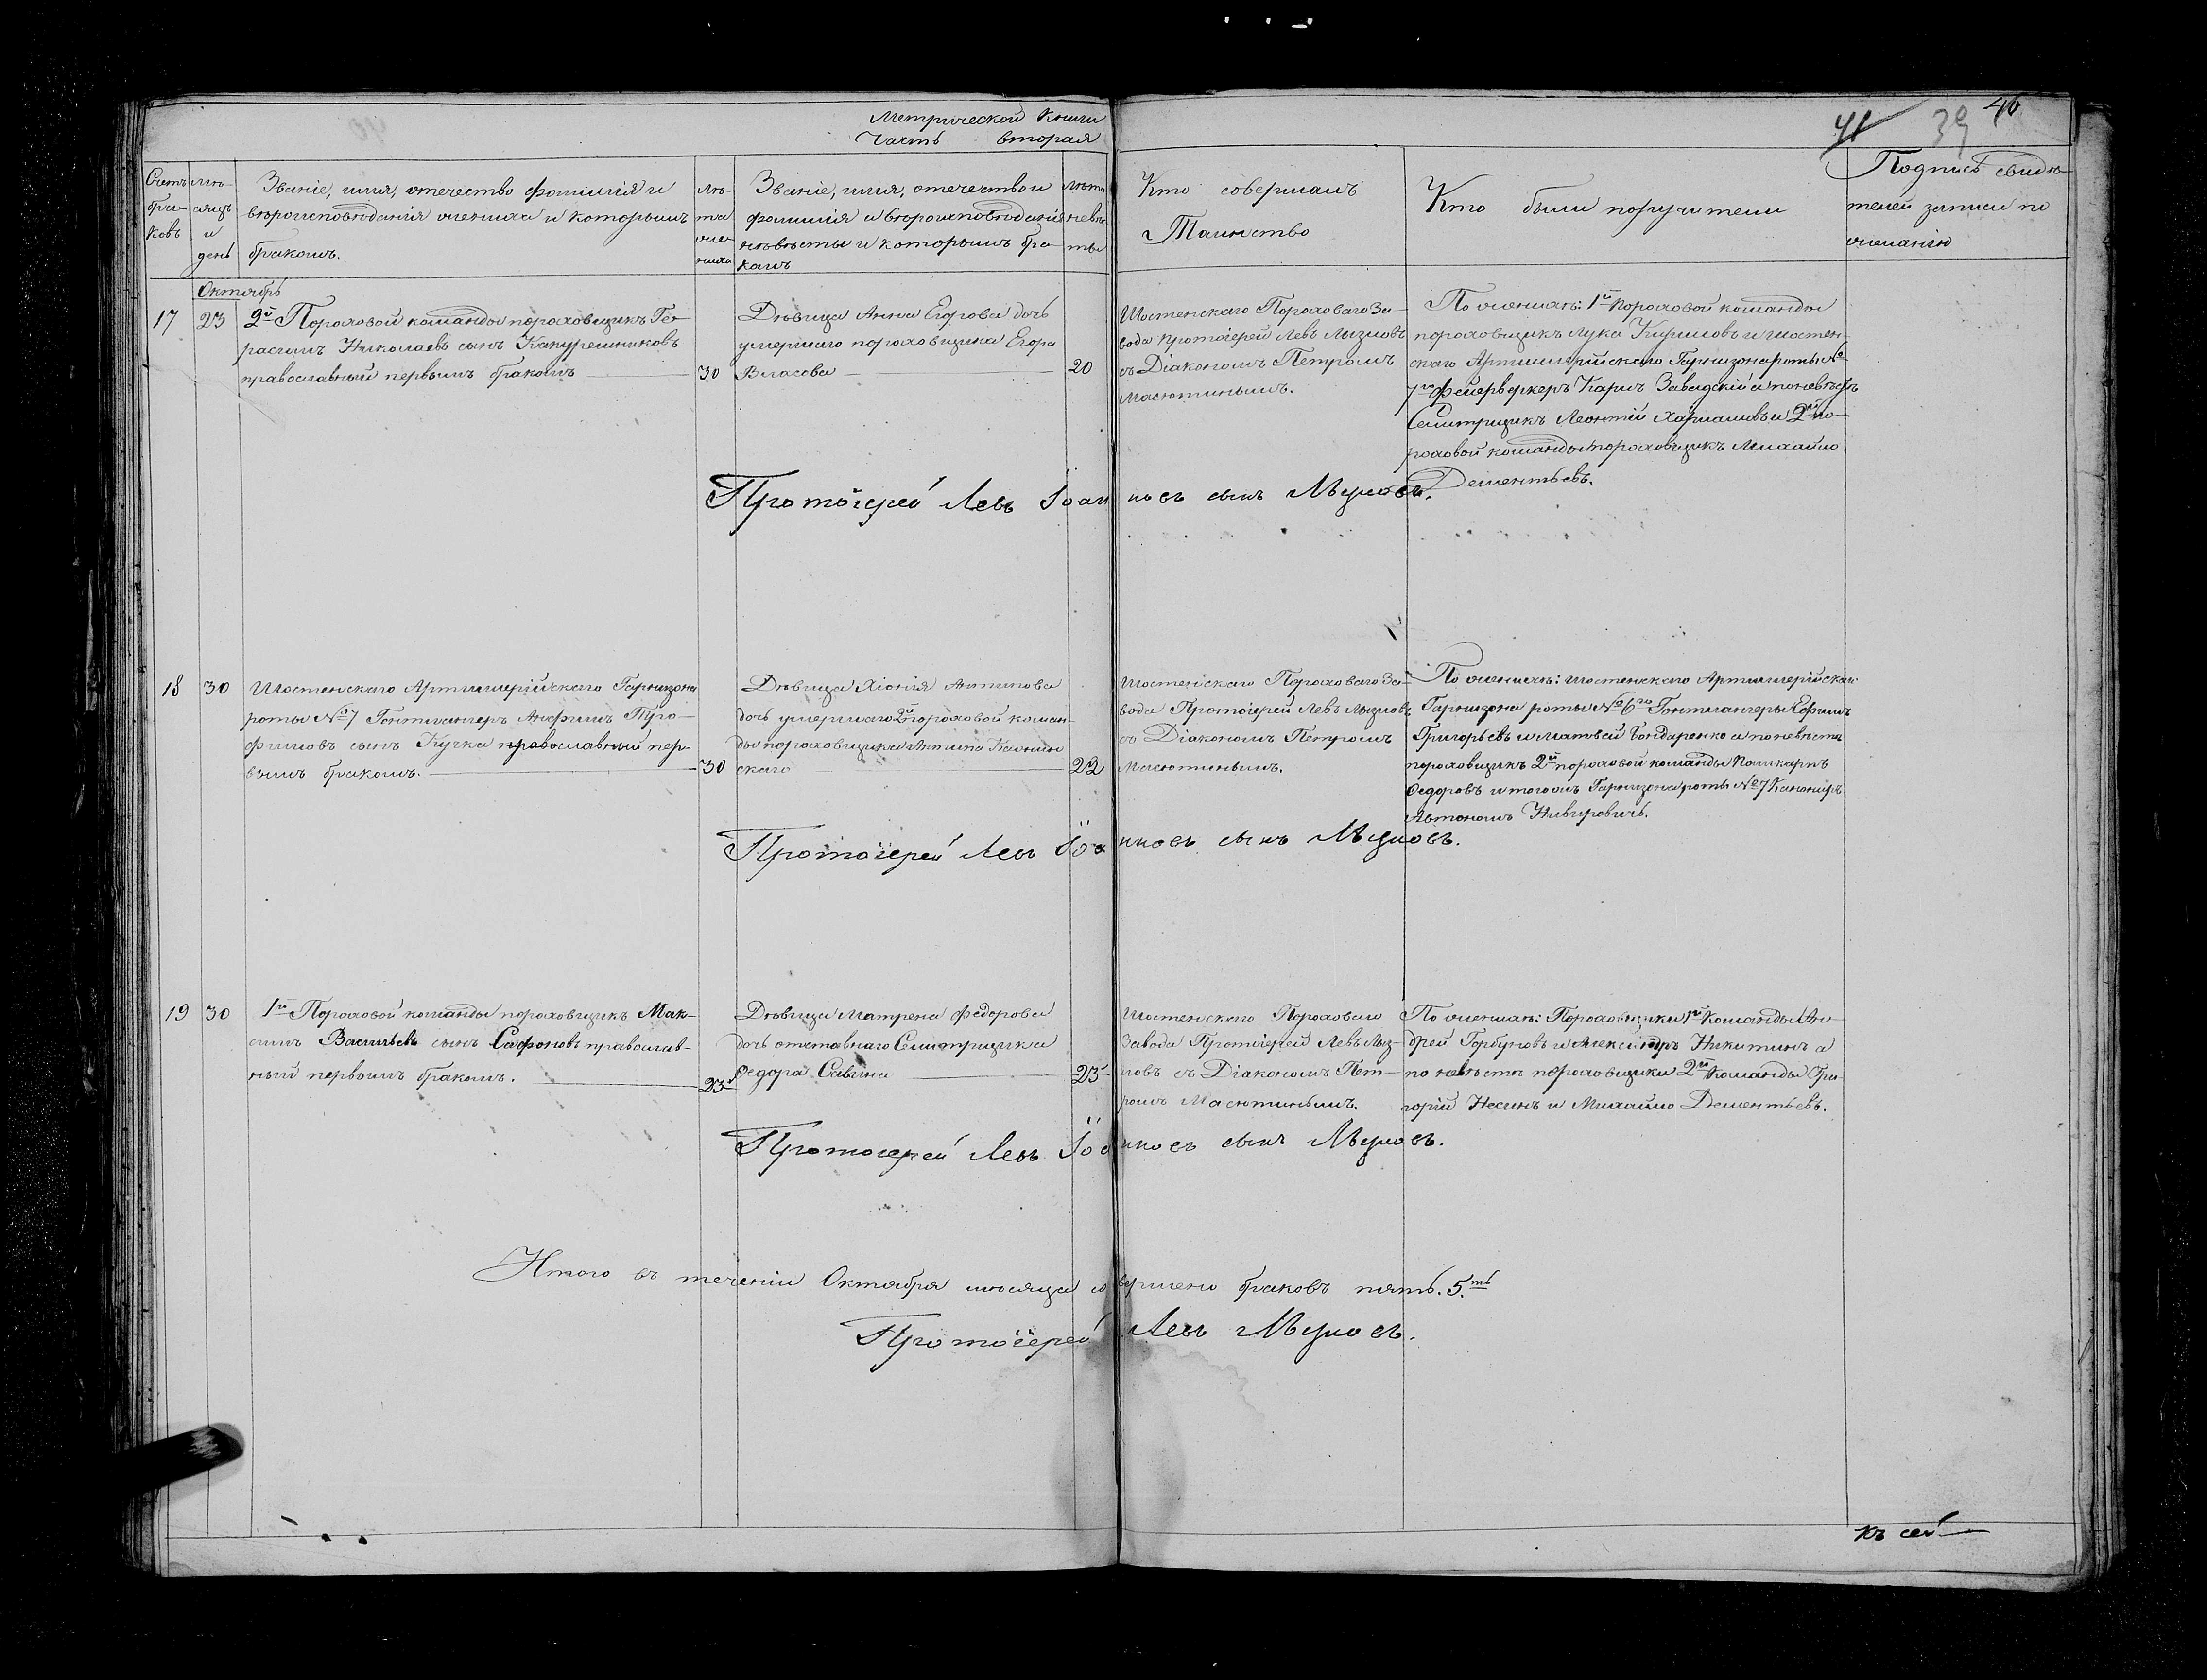 Метрической Книги
Часть вторая
41 39 40
Счетъ браковъ
Мѣсяцъ и день
Званіе, имя, отечество фамилія и
вѣроисповѣданія жениха и которымъ
бракомъ.
Лѣта жениха
Званіе, имя, отечество и
фамилія и вѣроисповѣданія
невѣсты и которымъ бра-
комъ
Лѣта невѣсты
Кто совершалъ
Таинство
Кто были поручители
Подпись свидѣ-
телей записи по
желанію
Октябрь
17 23
2й Пороховой команды пороховщикъ Ге-
расимъ Николаевъ сынъ
православный первымъ бракомъ 30
Дѣвица Анна Егорова дочь
умершаго пороховщика Егора
Власова 20
Шостенскаго Пороховаго За-
вода Протоіерей Левъ Мызновъ
съ Діакономъ Петромъ
Масютинымъ.
По женихѣ: 1й пороховой команды
пороховщикъ Лука Кириловъ и шостен-
скаго Артиллерійскаго Гарнизона роты №
7го Фейерверкеръ Карпъ Завадскій а по невѣстѣ
Селитрщикъ Леонтій Харламовъ и 2й по-
роховой команды пороховщикъ Михайло
Дементьевъ.
Протоіерей Левъ Іоанновъ сынъ Мызновъ.
18 30
Шостенскаго Артиллерійскаго Гарнизона
роты №7 Гонтлангеръ Анфимъ Тро-
фимовъ сынъ Кучка православный пер-
вымъ бракомъ. 30
Дѣвица Хіонія Антипова
дочь умершаго 2й пороховой коман-
ды пороховщика Антипа
скаго 22
Шостенскаго Пороховаго За-
вода Протоіерей Левъ Мызновъ
съ Діакономъ Петромъ
Масютинымъ.
По женихѣ: шостенскаго Артиллерійскаго
Гарнизона роты №6го Гонтлангеры Ефимъ
Григорьевъ и Матвей Бондаренко а по невѣстѣ
пороховщикъ 2й пороховой команды Поликарпъ
Федоровъ и тогожъ Гарнизона роты №7 Канониръ
Автономъ
Протоіерей Левъ Іоанновъ сынъ Мызновъ.
19 30
1й Пороховой команды пороховщикъ Мак-
симъ Васильевъ сынъ Сафоновъ православ-
ный первымъ бракомъ. 23
Дѣвица Матрена Федорова
дочь отставнаго Селитрщика
Федора Савина 23
Шостенскаго Пороховаго
Завода Протоіерей Левъ Мыз-
новъ съ Діакономъ Пет-
ромъ Масютинымъ.
По женихѣ: Пороховщики 1й Команды Ан-
дрей Горбуновъ и Александръ Никитинъ а
по невѣстѣ пороховщики 2й Команды Гри-
горій Несинъ и Михайло Дементьевъ.
Протоіерей Левъ Іоанновъ сынъ Мызновъ.
Итого въ теченіи Октября мѣсяца совершено браковъ пять. 5.ть
Протоіерей Левъ Мызновъ.
Къ сей